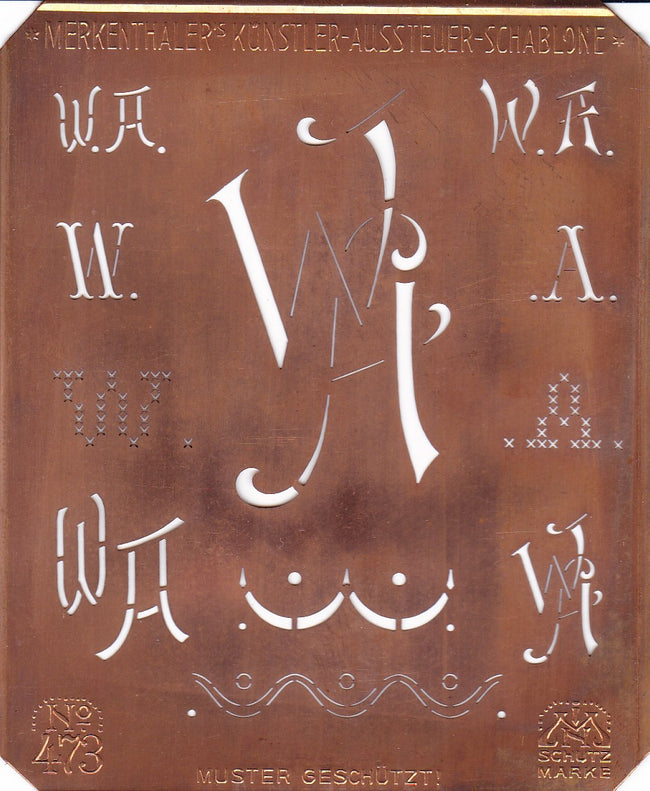 * MERKENTHALER'S KÜNSTLER-AUSSTEUER-SCHABLONE *
W.A. W.A.
WA
W. .A.
W. .A.
WA WA
No
473
SCHUTZ
MARKE
MUSTER GESCHÜTZT!